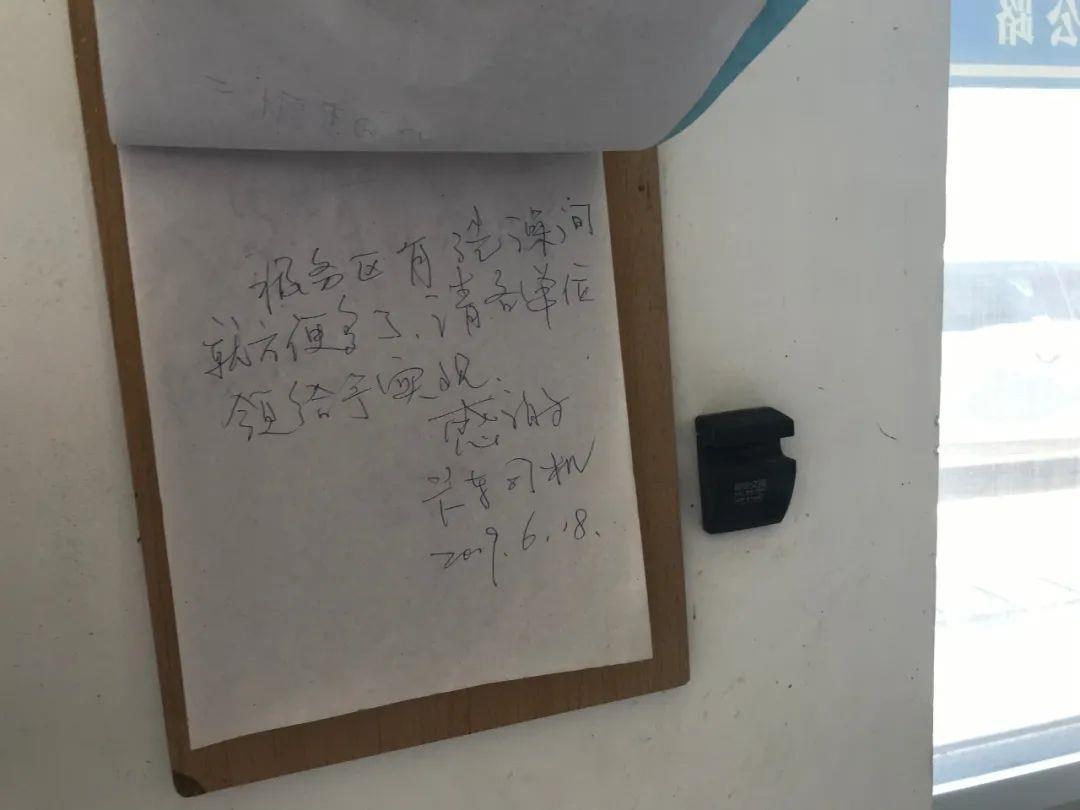 公路
服务区有洗澡间
就方便多了.请各单位
领给予实现.
感谢
卡车司机
2019.6.18.